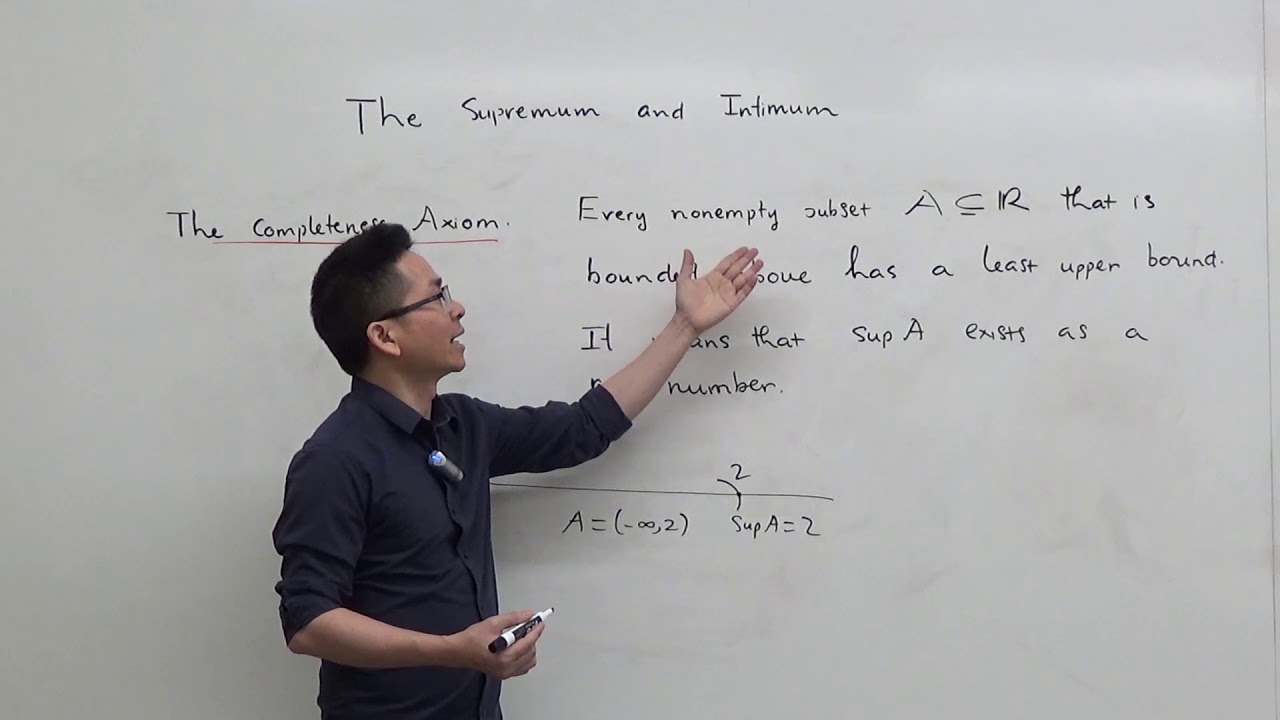 The Supremum and Intimum
The Completeness Axiom.
Every nonempty subset A ⊆ ℝ that is
bounded above has a least upper bound.
It that sup A exists as a
number.
2
A = (-∞, 2) Sup A = 2